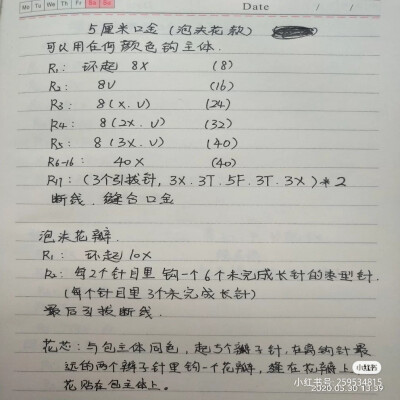 Mo Tu We Th Fr Sa Su
Date / /
5厘米口金(泡沫花款)
可以用任何颜色钩主体.
R1: 环起 8X (8)
R2: 8V (16)
R3: 8(X.V) (24)
R4: 8(2X.V) (32)
R5: 8(3X.V) (40)
R6-16: 40X (40)
R17: (3个引拔针, 3X.3T.5F.3T.3X)*2
断线. 缝合口金
泡沫花瓣.
R1: 环起 10X
R2: 每2个针目里 钩一个6个未完成长针的枣型针.
(每个针目里3个未完成长针)
最后引拔断线.
花芯: 与包主体同色, 起5个辫子针, 在离钩针最
远的两个辫子针里钩一个花瓣, 缝在花瓣上
花贴在包主体上.
小红书
小红书号: 259534815
2020.05.30 13:39